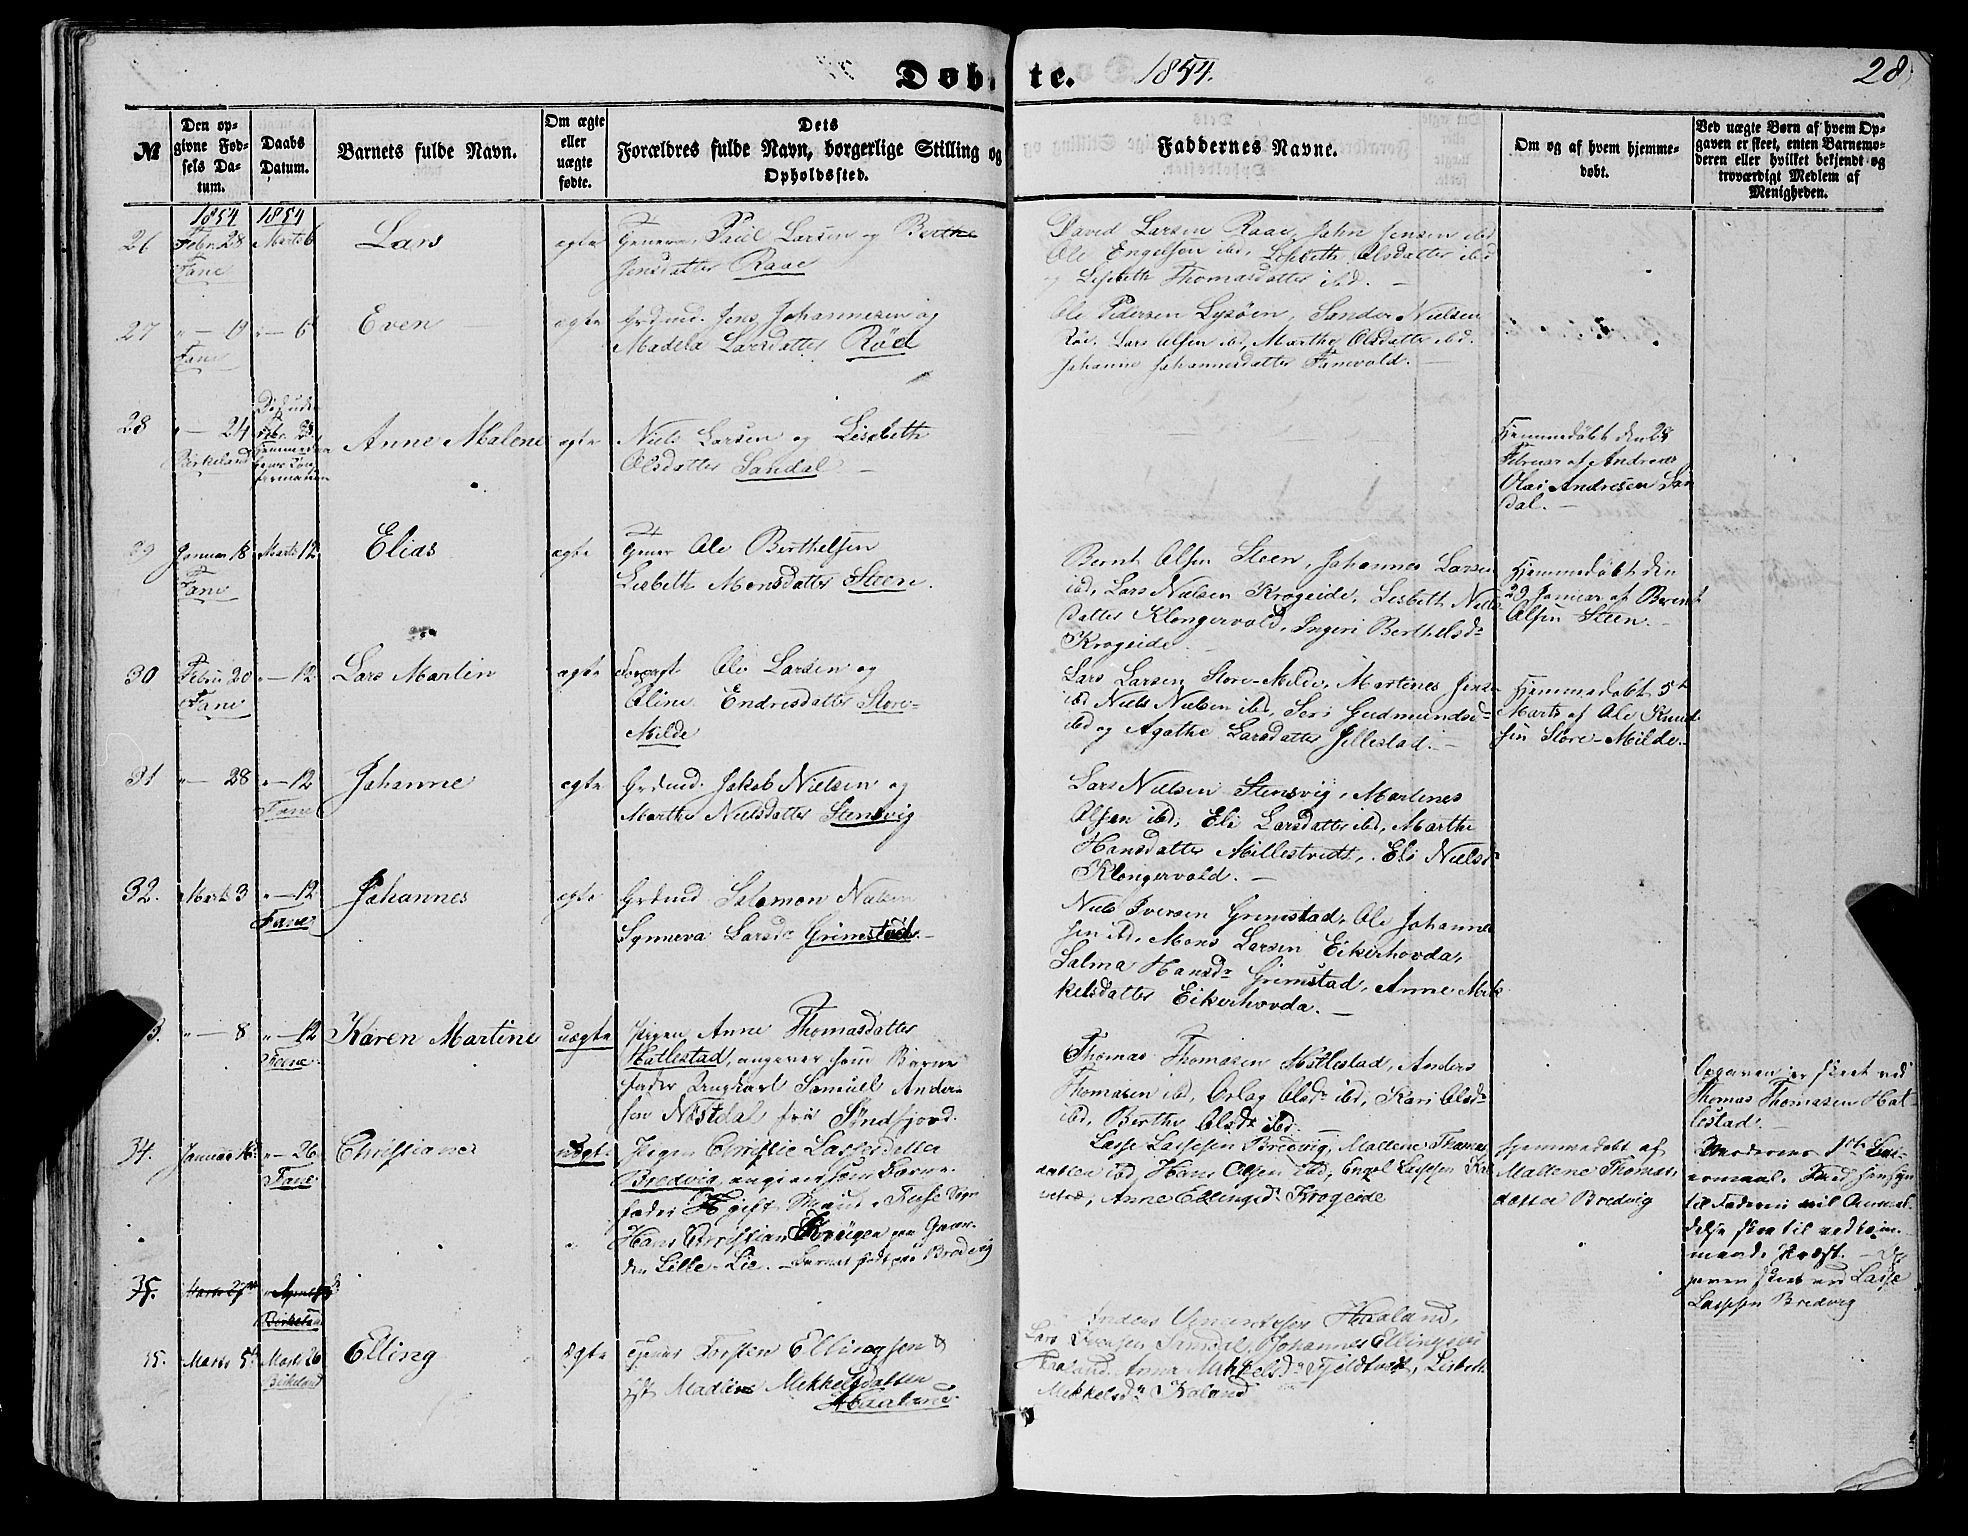 Døbte. 1854. 28
№
Den opgivne Fødsels Datum.
Daabs Datum.
Barnets fulde Navn.
Om ægte eller uægte fødte.
Dets Forældres fulde Navn, borgerlige Stilling og Opholdssted.
Faddernes Navne.
Om og af hvem hjemmedøbt.
Ved uægte Børn af hvem Opgaven er skeet, enten Barnemoderen eller hvilket bekjendt og troværdigt Medlem af Menigheden.
1854 1854
26 Febr. 28 Marts 6 Lars ægte Paul Larsen og Berthe
Fane
Jensdatter Raae
David Larsen Raae, John Jensen ibd
Ole Engelsen ibd, Lisbeth Olsdatter ibd
og Lisbeth Thomasdatter ibd. —
27 " — 19 " — 6 Even ægte Grdmd. Jens Johannesen og
Fane
Madela Larsdatter Röd
Ole Pedersen Lysöen, Sander Nielsen
Röd, Lars Olsen ibd, Marthe Olsdatter ibd.
Johanne Johannesdatter Fanevold. —
28 " — 24 Anne Malene ægte Niels Larsen og Lisebeth
Birkeland
Olsdatter Sandal —
Hjemmedöbt den 28
Februar af Andreas
Olai Andresen San
dal. —
29 Januar 18 Marts 12 Elias ægte Ole Berthelsen
Fane
Lisbeth Monsdatter Steen.
Bernt Olsen Steen, Johannes Larsen
ibd, Lars Nielsen Krogeide, Lisbeth Niels
datter Klongervold, Ingeri Berthelsdr
Krogeide. —
Hjemmedöbt den
29 Januar af Bernt
Olsen Steen. —
30 Febru 20 " — 12 Lars Martin ægte Ole Larsen og
Fane
Oline Endresdatter Store-
Milde
Lars Larsen Store-Milde, Martines Jense
ibd Niels Nielsen ibd, Seri Gudmundsd
ibd og Agathe Larsdatter Jillestad. —
Hjemmedöbt 5t
Marts af Ole Knud
sen Store-Milde. —
31 " — 28 " — 12 Johanne ægte Grdmd. Jakob Nielsen og
Fane
Marthe Nielsdatter Stensvig
Lars Nielsen Stensvig, Martines
Olsen ibd, Eli Larsdatter ibd, Marthe
Hansdatter Millestvedt, Eli Nielsd
Klongervold. —
32. Marts 3 " — 12 Johannes ægte Grdmd Salomon Nielsen
Fane
Synneva Larsd Grimstad. —
Niels Iversen Grimstad, Ole Johanne
sen ibd, Mons Larsen Eikerhovda,
Salma Hansdr Grimstad, Anne Mik
kelsdatter Eikerhovda. —
" — 8 " — 12 Karen Martine uægte Pigen Anne Thomasdatter
Hatlestad, angiver som Barne
fader Ungkarl Samuel Ander-
sen Nöstdal fra Söndfjord.
Thomas Thomasen Hatlestad, Anders
Thomasen ibd, Orlog Olsdr ibd, Kari Olsdr
ibd, Berthe Olsdr ibd.
Opgaven er skeet ved
Thomas Thomasen Hat-
lestad. —
34. Januar " — 26 Christiane uægte Pigen Christie Lassesdatter
Fane
Bredvig, angiver som Barne-
fader gift Mand
Hans Christian Krüger paa Gaar-
den Lille-Lie. — Barnet født paa Bredvig
Lasse Lassesen Bredvig, Maltene Thomas
datter ibd, Hans Olsen ibd, Engel Lassesen
Anne Ellingsdr Krogeide
hjemmedøbt af
Maltene Thomas-
datter Bredvig
Moderens 1ste Lei-
ermaal.
til Faderen vil Anmel-
delse skee til vedkom-
mende Præst. —
skeet ved Lasse
Lassesen Bredvig
35. Marts
Birkeland
35. Marts 5te Marts 26 Elling Ægte Torsten Ellingsen &
Birkeland
Madlene Mikkelsdatter
Haaland.
Haaland,
Lars Sandal, Johannes Ellingsen
Haaland, Anna Mikkelsdr Tjeldtvedt, Lisbeth
Mikkelsdr Haland